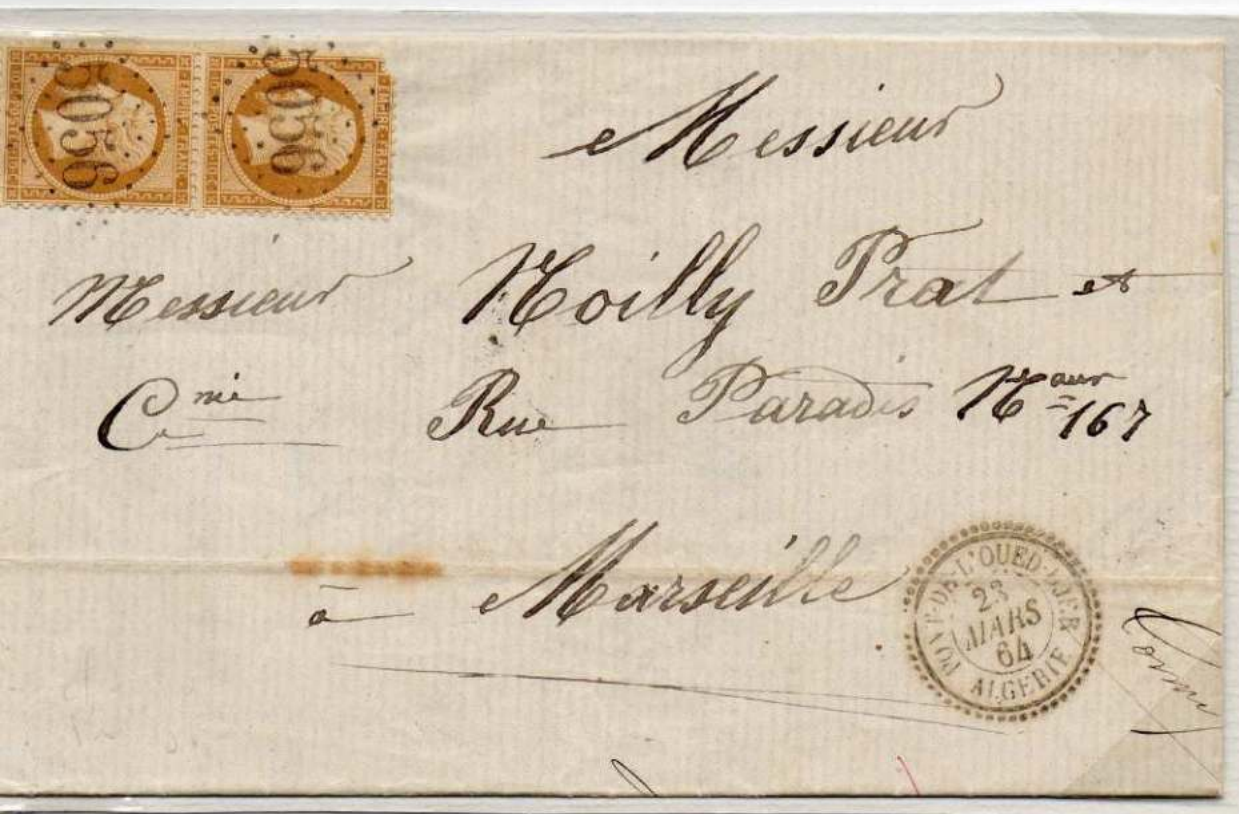 3056 3056
EMPIRE FRANC
Messieur
Messieur Noilly Prat et
Cie mie Rue Paradis Naur 167
à Marseille
PONT-DE-L'OUED-DJER
23
MARS
64
ALGERIE